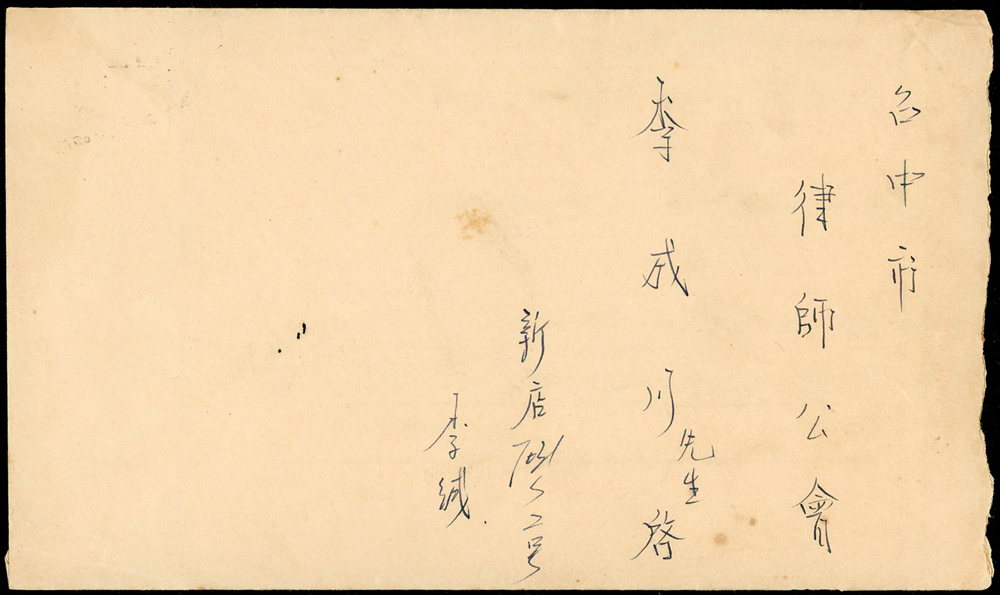 台中市
律師公會
李成川先生啓
新店 二号
李緘